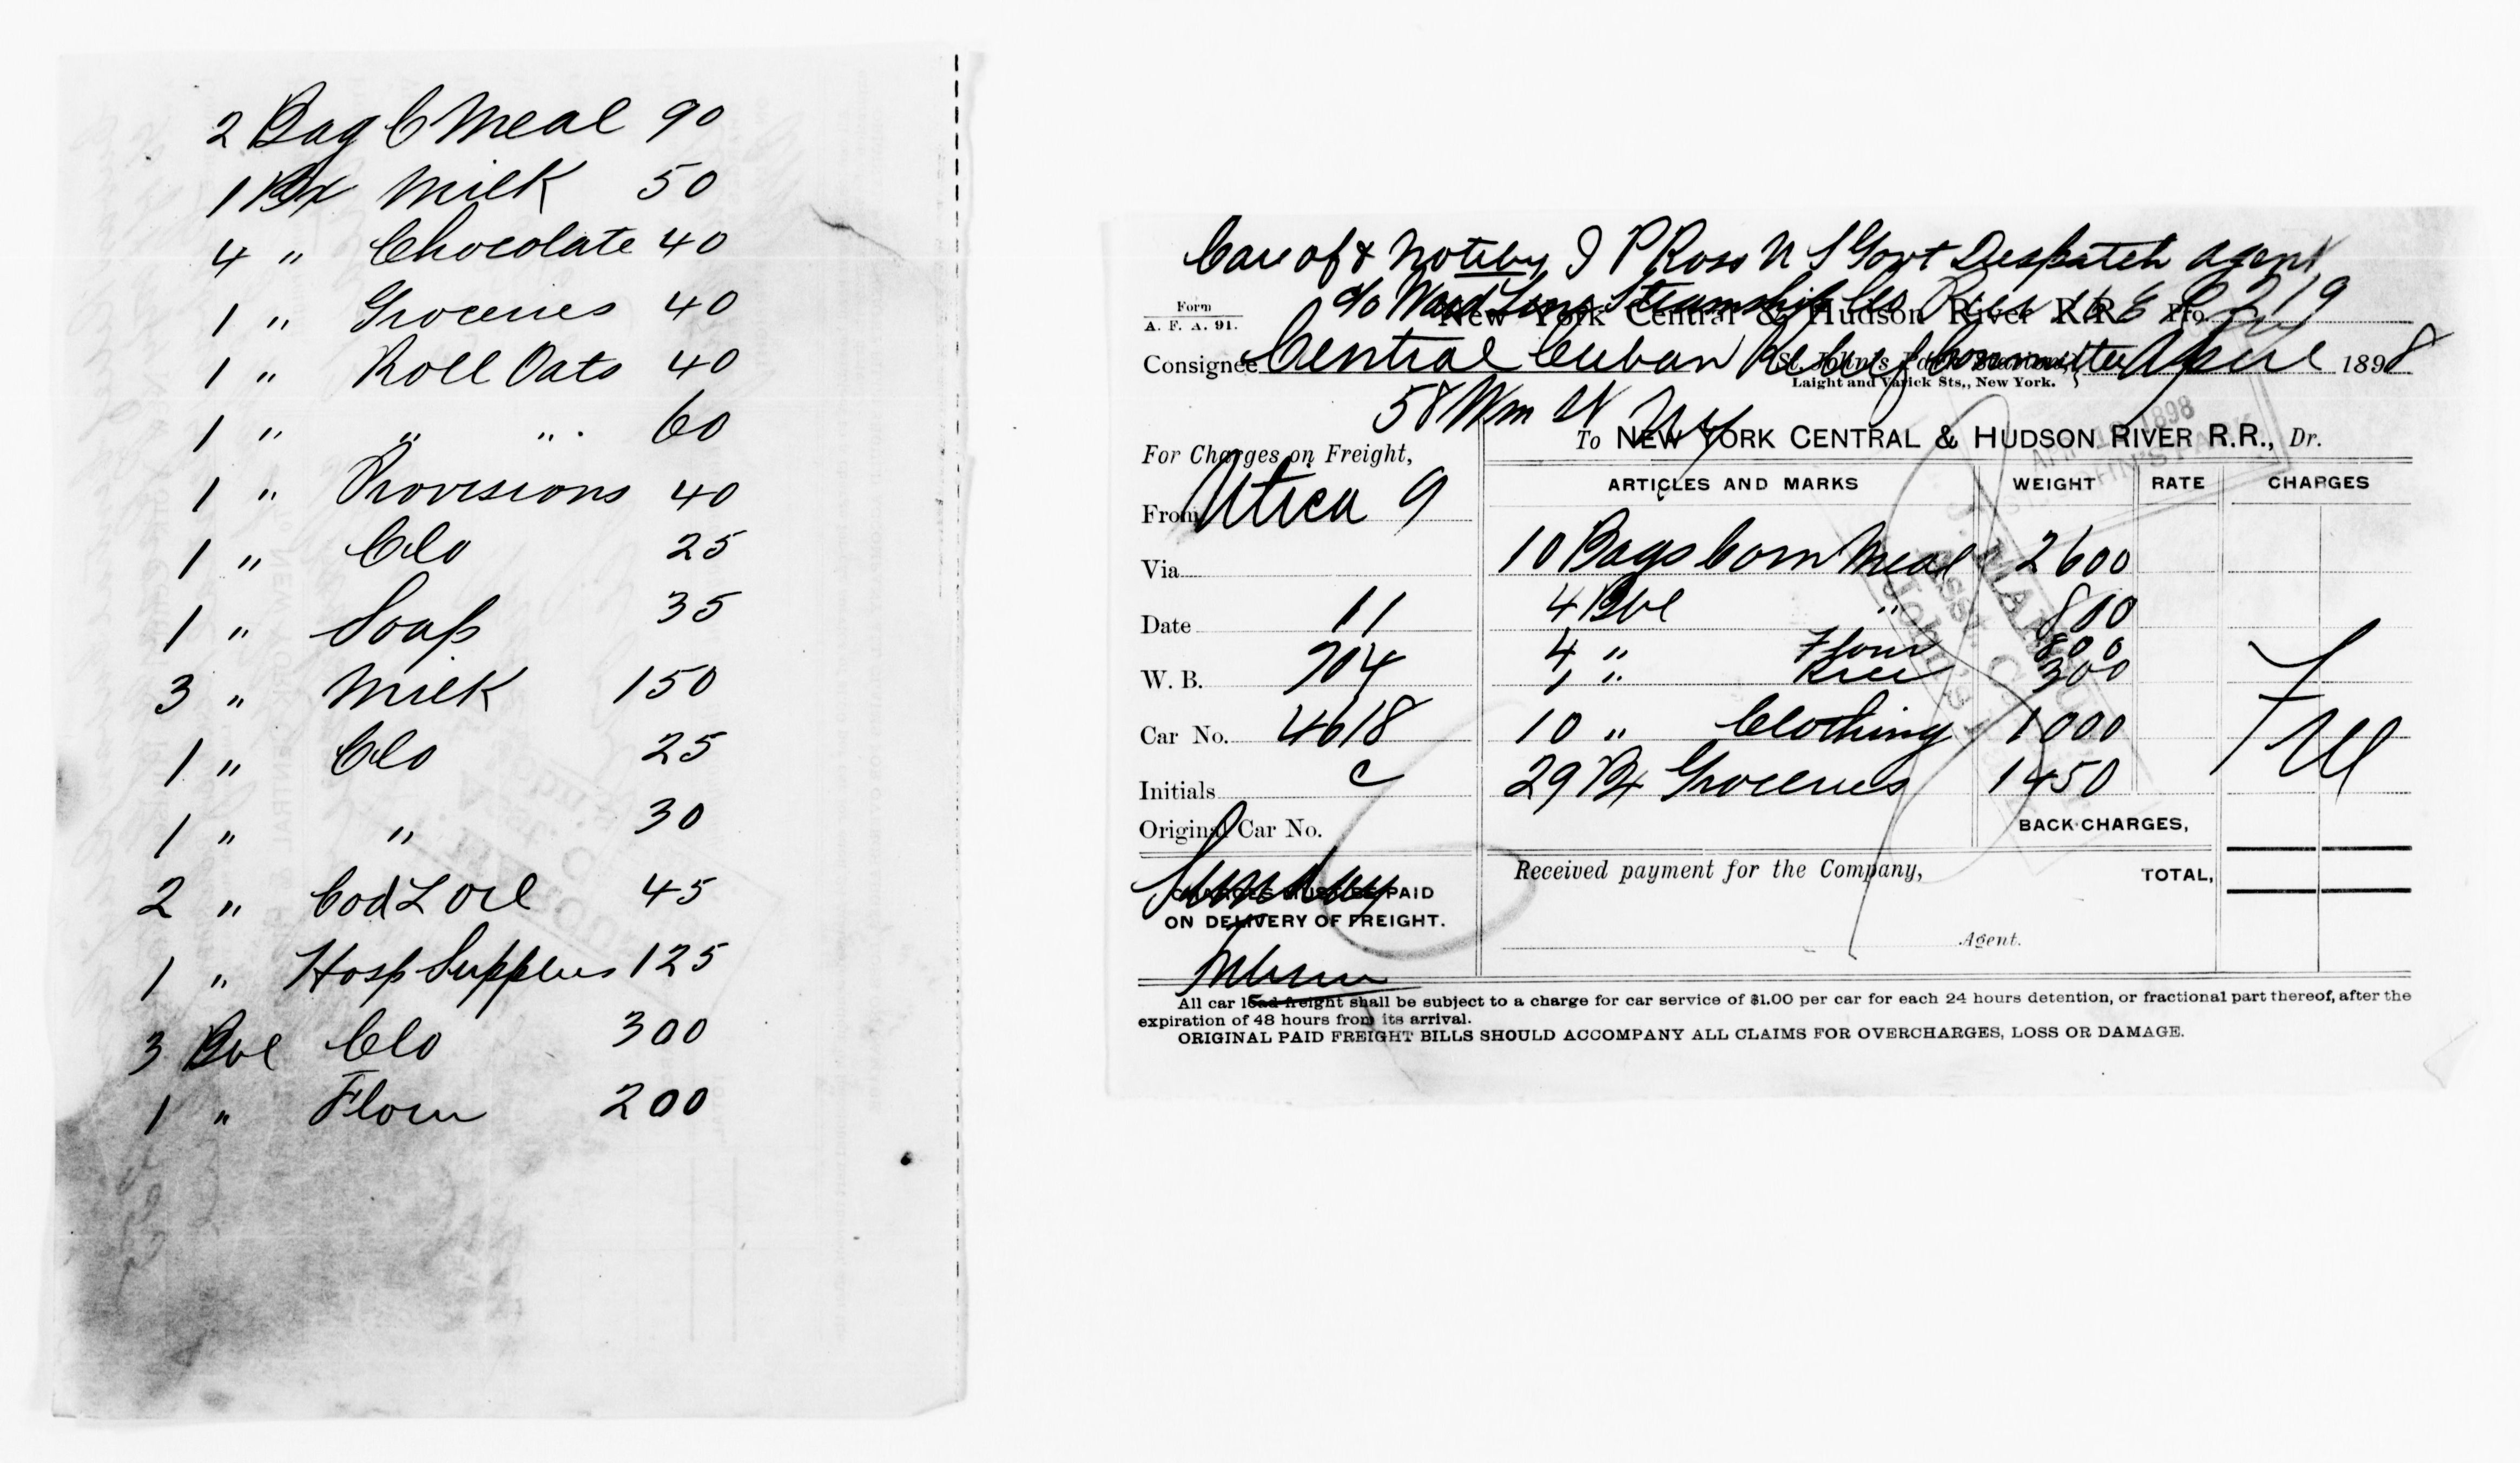 2 Bag C Meal 90
1 Bx Milk 50
4 " Chocolate 40
1 " Groceries 40
1 " Roll Oats 40
1 " " " 60
1 " Provisions 40
1 " Clo 25
1 " Soap 35
3 " Milk 150
1 " Clo 25
1 " " 30
2 " Cod L Oil 45
1 " Hosp Supplies 125
3 Bbl Clo 300
1 " Flour 200
Care of & Notify I P Roso U S Govt Despatch agent
c/o Ward Line Steamship Co Pier 16 E R 219
Form
A. F. A. 91.
New York Central & Hudson River R.R. Pro.
Consignee Central Cuban Relief Committee April 1898
St. John's Park Station,
Laight and Varick Sts., New York.
58 Wm St N Y
For Charges on Freight,
To NEW YORK CENTRAL & HUDSON RIVER R.R., Dr.
APR 1898
ST. JOHN'S PARK
ARTICLES AND MARKS WEIGHT RATE CHARGES
From Utica 9
Via
10 Bags Corn Meal 2600
Date 11
4 Bbl " 800
4 " Flour 800
W. B. 704
1 " Rice 300
Car No. 4618
10 " Clothing 1000
Initials C
29 Bx Groceries 1450
Free
Original Car No.
BACK CHARGES,
CHARGES MUST BE PAID
ON DELIVERY OF FREIGHT.
Received payment for the Company,
TOTAL,
Agent.
All car load freight shall be subject to a charge for car service of $1.00 per car for each 24 hours detention, or fractional part thereof, after the
expiration of 48 hours from its arrival.
ORIGINAL PAID FREIGHT BILLS SHOULD ACCOMPANY ALL CLAIMS FOR OVERCHARGES, LOSS OR DAMAGE.